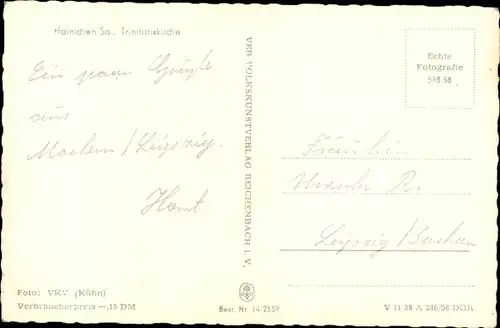 Hainichen Sa., Trinitatiskirche
Ein paar Grüße
aus
/ Leipzig.
Horst
VEB VOLKSKUNSTVERLAG REICHENBACH i. V.
Echte
Fotografie
598 58
Fräulein
Ursula R.
Leipzig / Sachsen
Foto: VKV (Kühn)
Verbraucherpreis —,15 DM
Best. Nr. 14/2559
V 11 28 A 246/58 DDR